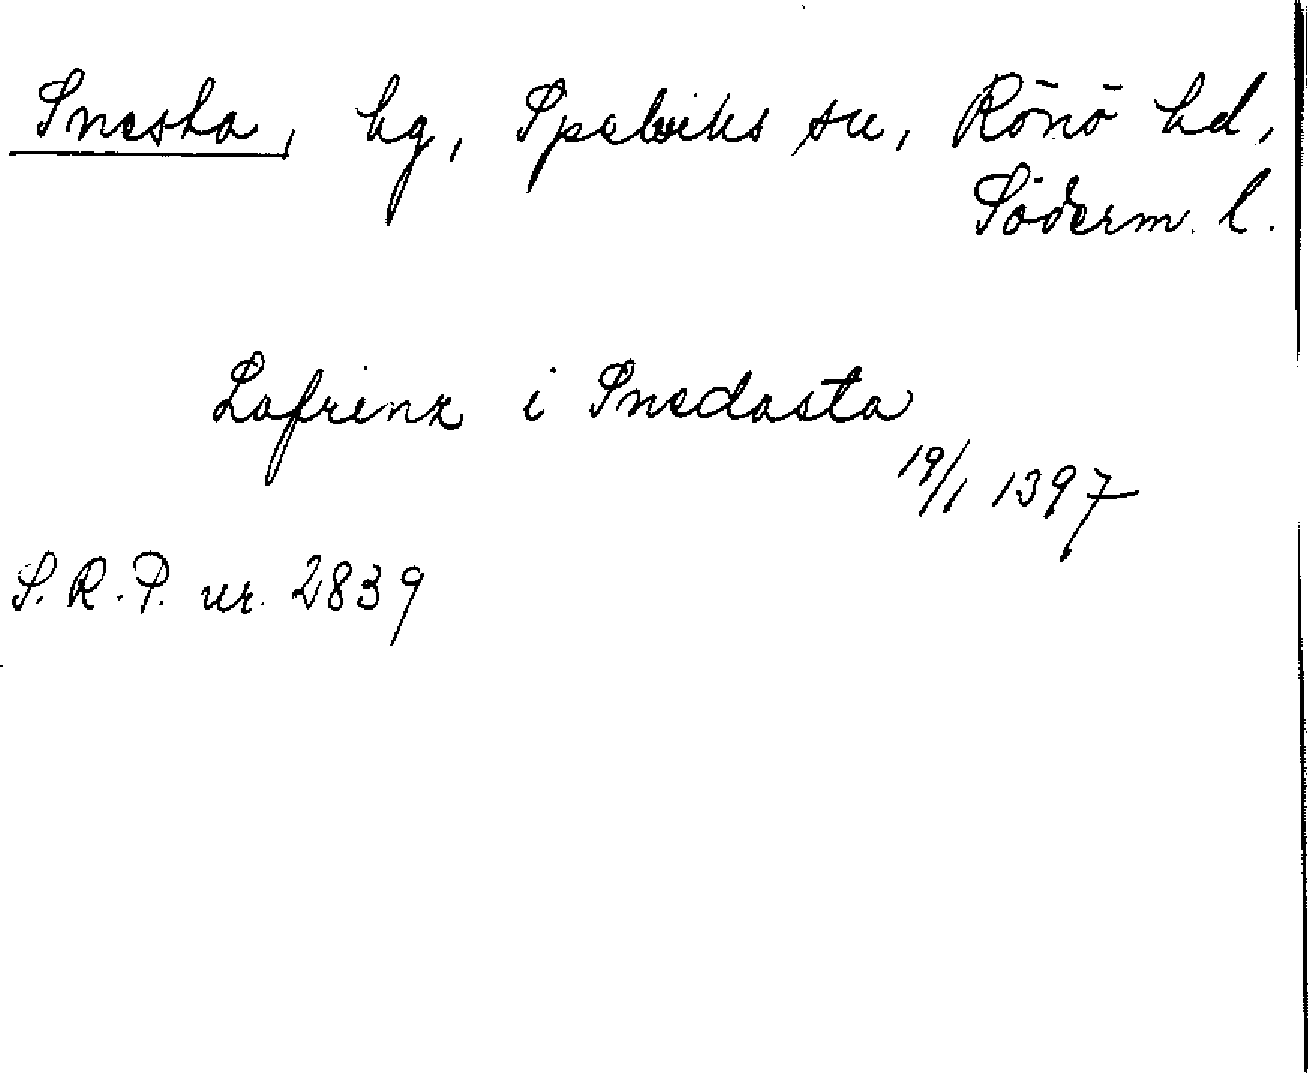 Snesta, hg, Spelviks sn, Rönö hd,
Söderm. l.
Lafrinz i Snedasta
19/1 1397
S.R.P. nr. 2839